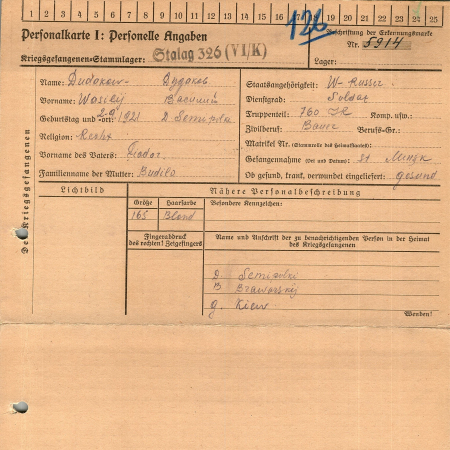 1 2 3 4 5 6 7 8 9 10 11 12 13 14 15 16 17 18 19 20 21 22 23 24 25
126
Personalkarte I: Personelle Angaben
Beschriftung der Erkennungsmarke
Nr. 5914
Kriegsgefangenen-Stammlager: Stalag 326 (VI/K)
Lager:
Des Kriegsgefangenen
Name: Dudakow- Дудаков
Vorname: Wasily Василий
Geburtstag und -ort: 2.9.1921 D.
Religion: Russt
Vorname des Vaters: Fedor.
Familienname der Mutter: Budilo
Staatsangehörigkeit: W-Russe.
Dienstgrad: Soldat
Truppenteil: 760 JR Komp. usw.:
Zivilberuf: Bauer Berufs-Gr.:
Matrikel Nr. (Stammrolle des Heimatstaates):
Gefangennahme (Ort und Datum): St Minsk
Ob gesund, krank, verwundet eingeliefert: gesund
Lichtbild
Nähere Personalbeschreibung
Größe Haarfarbe Besondere Kennzeichen:
165 Blond
Fingerabdruck des rechten! Zeigefingers
Name und Anschrift der zu benachrichtigenden Person in der Heimat des Kriegsgefangenen
D. Semipolki
B Browarskij
g. Kiew
Wenden!